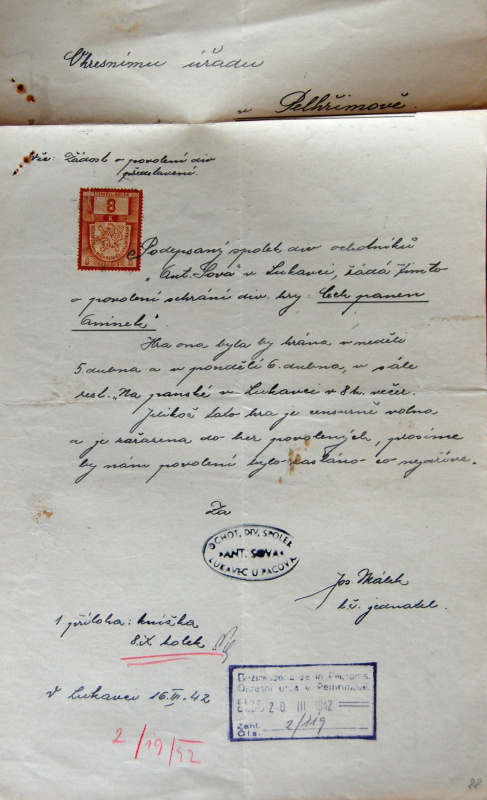 Okresnímu úřadu
v Pelhřimově.
Žádost o povolení div.
představení.
8
K
Podepsaný spolek div. ochotníků
"Ant. Sova" v Lukavci, žádá tímto
o povolení sehrání div. hry: Cech panen
Aninek"
Hra ona byla by hrána v neděli
5. dubna a v pondělí 6. dubna, v sále
rest. „Na panské v Lukavci v 8 h. večer.
Jelikož tato hra je censurně volna
a je zařazena do her povolených, prosíme
by nám povolení bylo zasláno co nejdříve.
Za
OCHOT. DIV. SPOLEK
"ANT. SOVA"
LUKAVEC U PACOVA
Jos Málek
t.č. jednatel.
1 příloha: knížka
8 K kolek
V Lukavci 16. III. 42
Okresní úřad v Pelhřimově
20 III 1942
Zahl.
Čís. 2/119
2/19/42
88